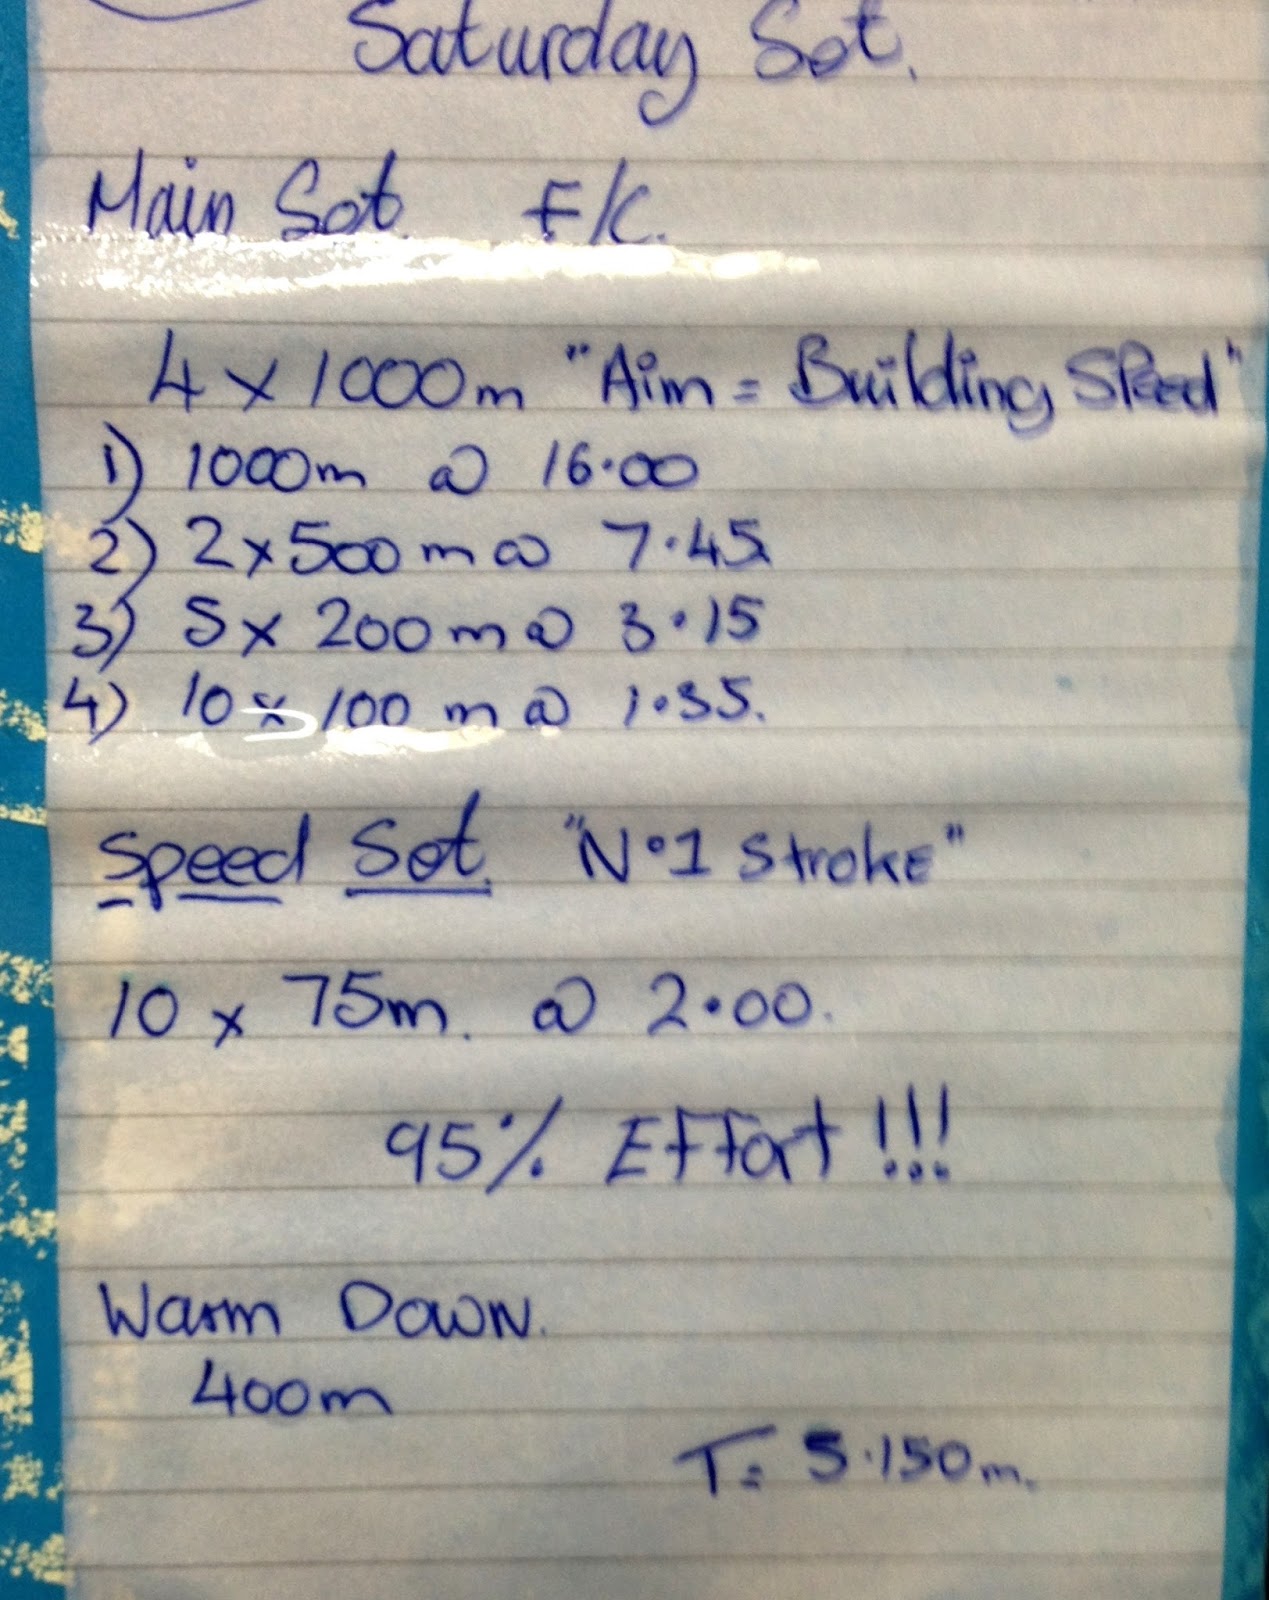 Saturday Set.
Main Set. F/C.
4 x 1000m "Aim = Building Speed"
1) 1000m @ 16.00
2) 2x500m @ 7.45
3) 5x 200m @ 3.15
4) 10 x 100 m @ 1.35.
Speed Set. "N°1 Stroke"
10 x 75m. @ 2.00.
95% Effort!!!
Warm Down.
400m
T= 5.150m.